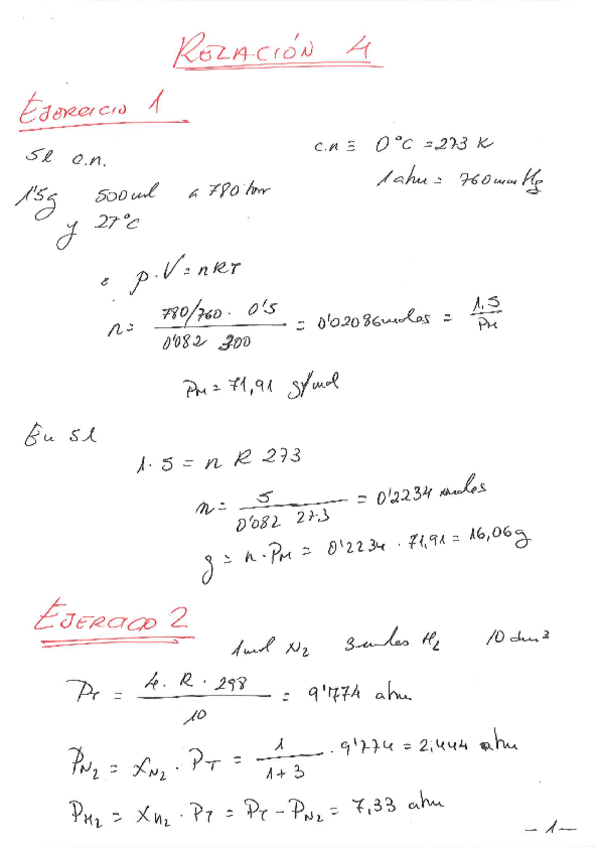 RELACIÓN 4
EJERCICIO 1
5l c.n. c.n ≡ 0°C = 273 K
1'5g 500 ml a 780 torr 1 atm = 760 mm Hg
y 27°C
p·V = nRT
n = 780/760 · 0'5 / 0'082 300 = 0'02086 moles = 1,5 / PM
PM = 71,91 g/mol
En 5l
1·5 = n R 273
n = 5 / 0'082 273 = 0'2234 moles
g = n·PM = 0'2234 · 71,91 = 16,06g
EJERCICIO 2
1 mol N2 3 moles H2 10 dm3
PT = 4·R·298 / 10 = 9'774 atm
PN2 = XN2 · PT = 1 / 1+3 · 9'774 = 2,444 atm
PH2 = XH2 · PT = PT - PN2 = 7,33 atm
-1-